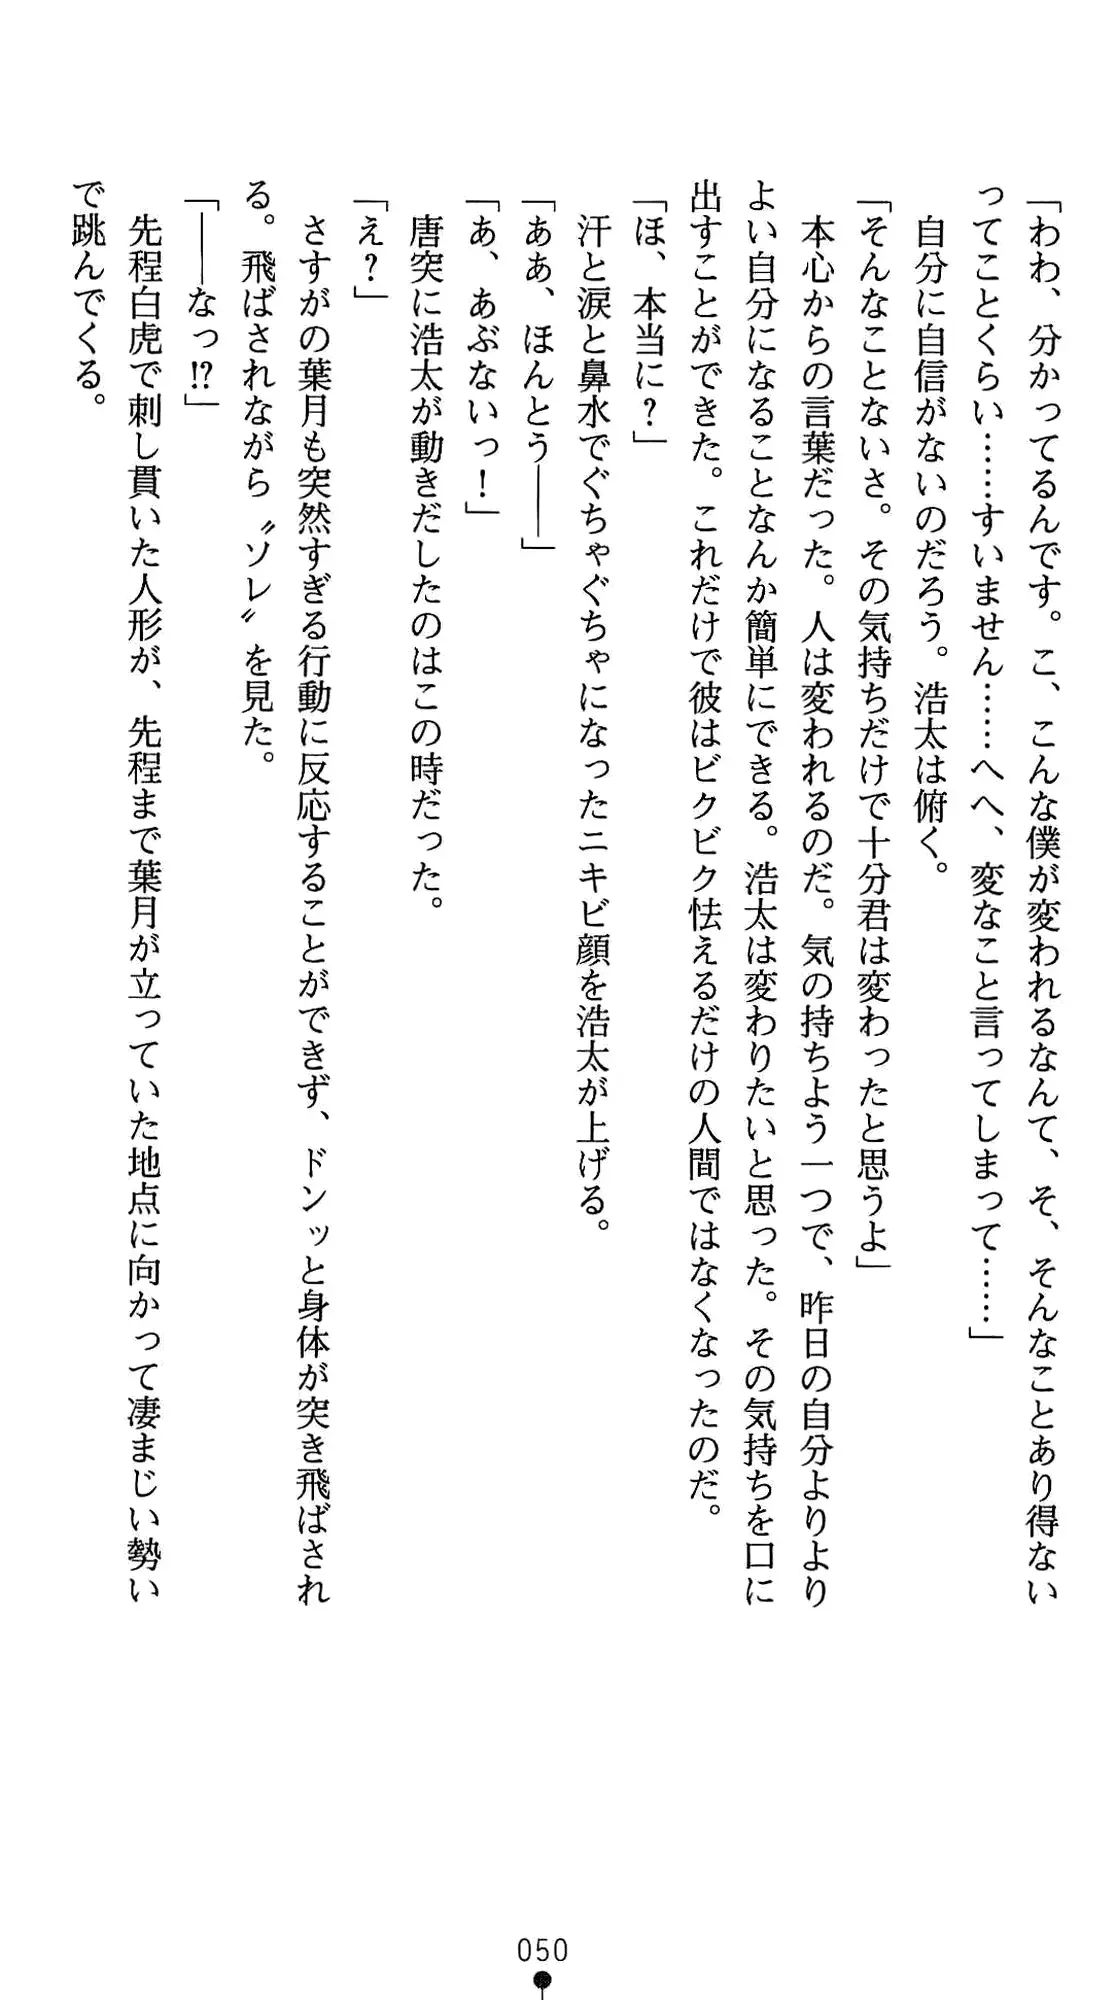 「わわ、分かってるんです。こ、こんな僕が変われるなんて、そ、そんなことあり得ない
ってことくらい……すいません……へへ、変なこと言ってしまって……」
　自分に自信がないのだろう。浩太は俯く。
「そんなことないさ。その気持ちだけで十分君は変わったと思うよ」
　本心からの言葉だった。人は変われるのだ。気の持ちよう一つで、昨日の自分よりより
よい自分になることなんか簡単にできる。浩太は変わりたいと思った。その気持ちを口に
出すことができた。これだけで彼はビクビク怯えるだけの人間ではなくなったのだ。
「ほ、本当に？」
　汗と涙と鼻水でぐちゃぐちゃになったニキビ顔を浩太が上げる。
「ああ、ほんとう――」
「あ、あぶないっ！」
　唐突に浩太が動きだしたのはこの時だった。
「え？」
　さすがの葉月も突然すぎる行動に反応することができず、ドンッと身体が突き飛ばされ
る。飛ばされながら〝ソレ〟を見た。
「――なっ!?」
　先程白虎で刺し貫いた人形が、先程まで葉月が立っていた地点に向かって凄まじい勢い
で跳んでくる。
050